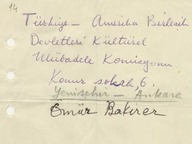 14
Türkiye - Amerika Birleşik
Devletleri Kültürel
Mübadele Komisyonu
Konur sokak, 6.
Yenişehir - Ankara
Ömür Bakırer